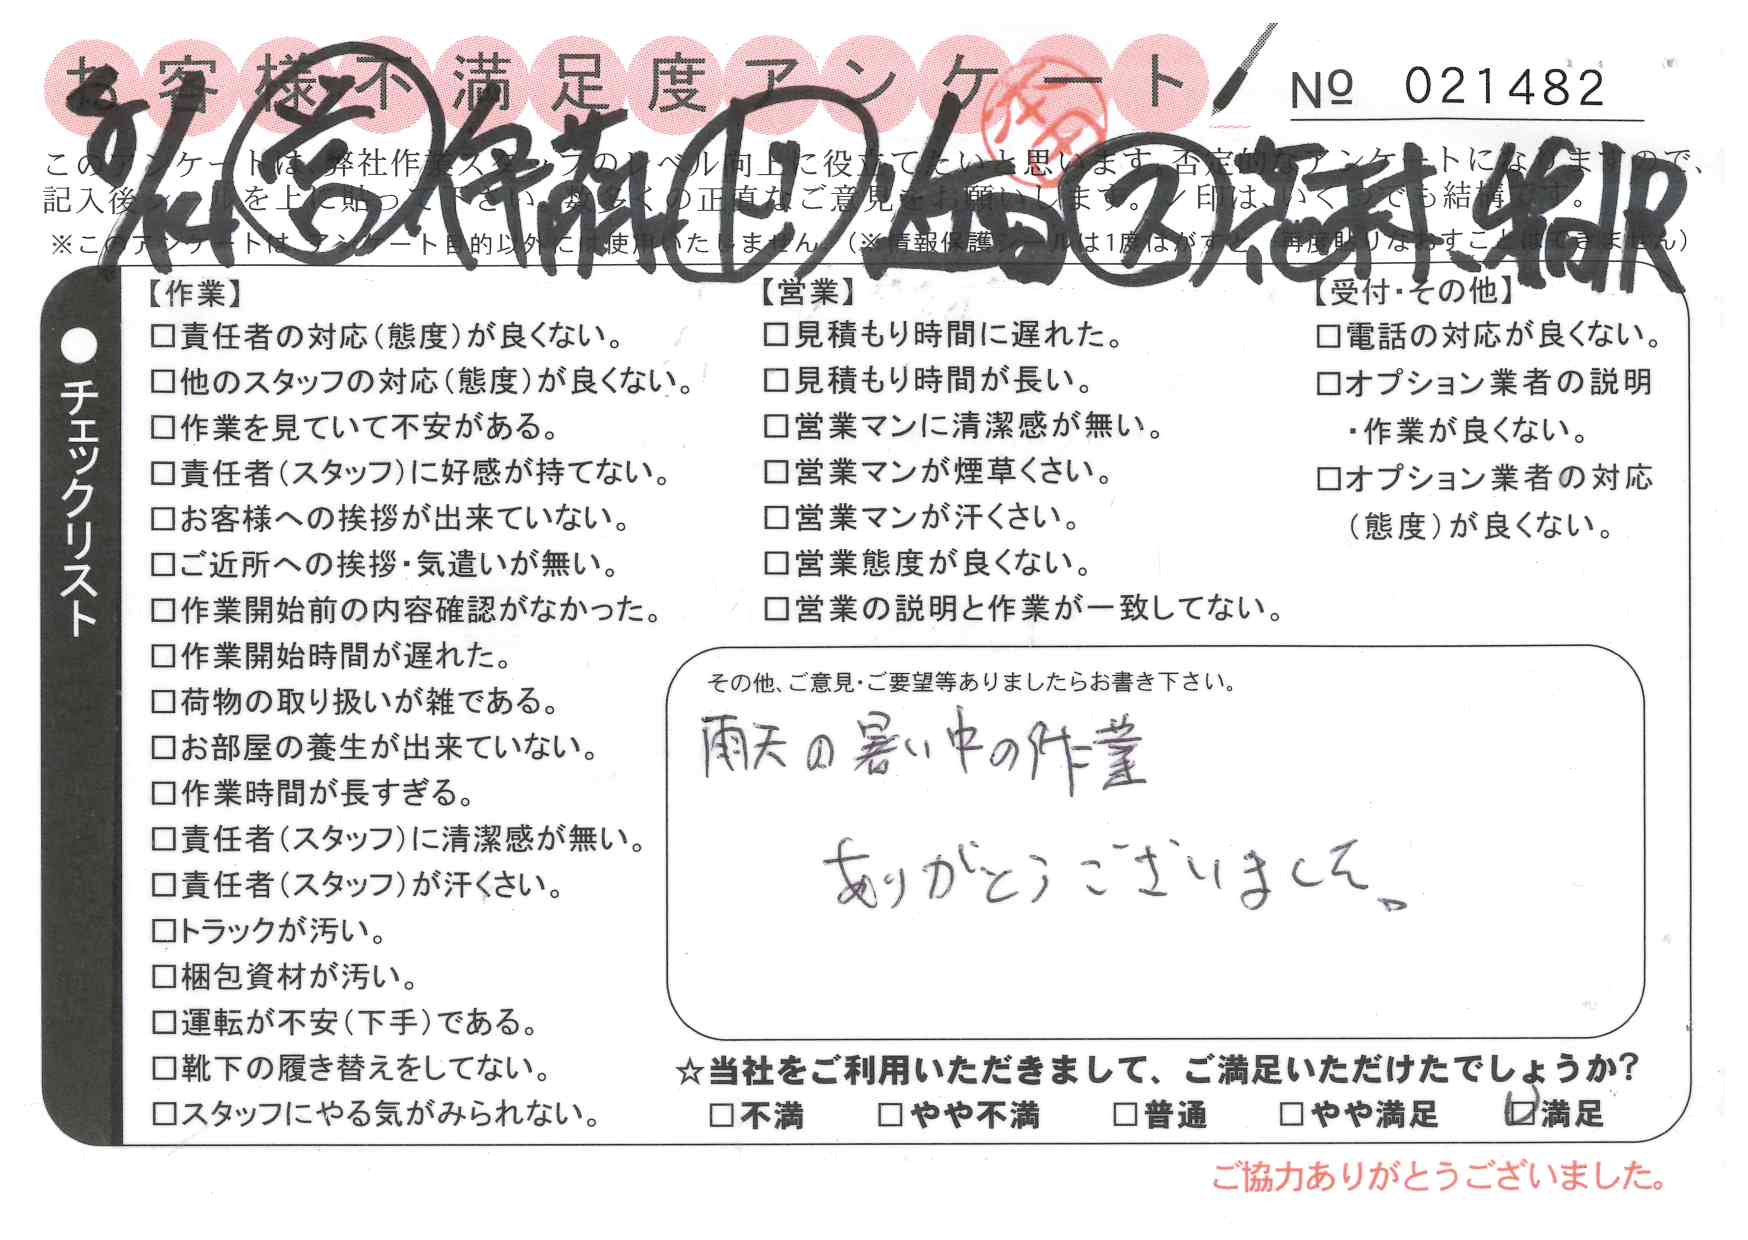 お客様不満足度アンケート
№ 021482
このアンケートは、弊社作業スタッフのレベル向上に役立てたいと思います。否定的なアンケートになりますので、
記入後シールを上に貼って下さい。数多くの正直なご意見をお願いします。／印は、いくつでも結構です。
※このアンケートは、アンケート目的以外には使用いたしません。（※情報保護シールは1度はがすと、再度貼りなおすことはできません）
8/14 営 伊藤
●チェックリスト
【作業】
□責任者の対応（態度）が良くない。
□他のスタッフの対応（態度）が良くない。
□作業を見ていて不安がある。
□責任者（スタッフ）に好感が持てない。
□お客様への挨拶が出来ていない。
□ご近所への挨拶・気遣いが無い。
□作業開始前の内容確認がなかった。
□作業開始時間が遅れた。
□荷物の取り扱いが雑である。
□お部屋の養生が出来ていない。
□作業時間が長すぎる。
□責任者（スタッフ）に清潔感が無い。
□責任者（スタッフ）が汗くさい。
□トラックが汚い。
□梱包資材が汚い。
□運転が不安（下手）である。
□靴下の履き替えをしてない。
□スタッフにやる気がみられない。
【営業】
□見積もり時間に遅れた。
□見積もり時間が長い。
□営業マンに清潔感が無い。
□営業マンが煙草くさい。
□営業マンが汗くさい。
□営業態度が良くない。
□営業の説明と作業が一致してない。
【受付・その他】
□電話の対応が良くない。
□オプション業者の説明
・作業が良くない。
□オプション業者の対応
（態度）が良くない。
その他、ご意見・ご要望等ありましたらお書き下さい。
雨天の暑い中の作業
ありがとうございました。
☆当社をご利用いただきまして、ご満足いただけたでしょうか？
□不満 □やや不満 □普通 □やや満足 ☑満足
ご協力ありがとうございました。